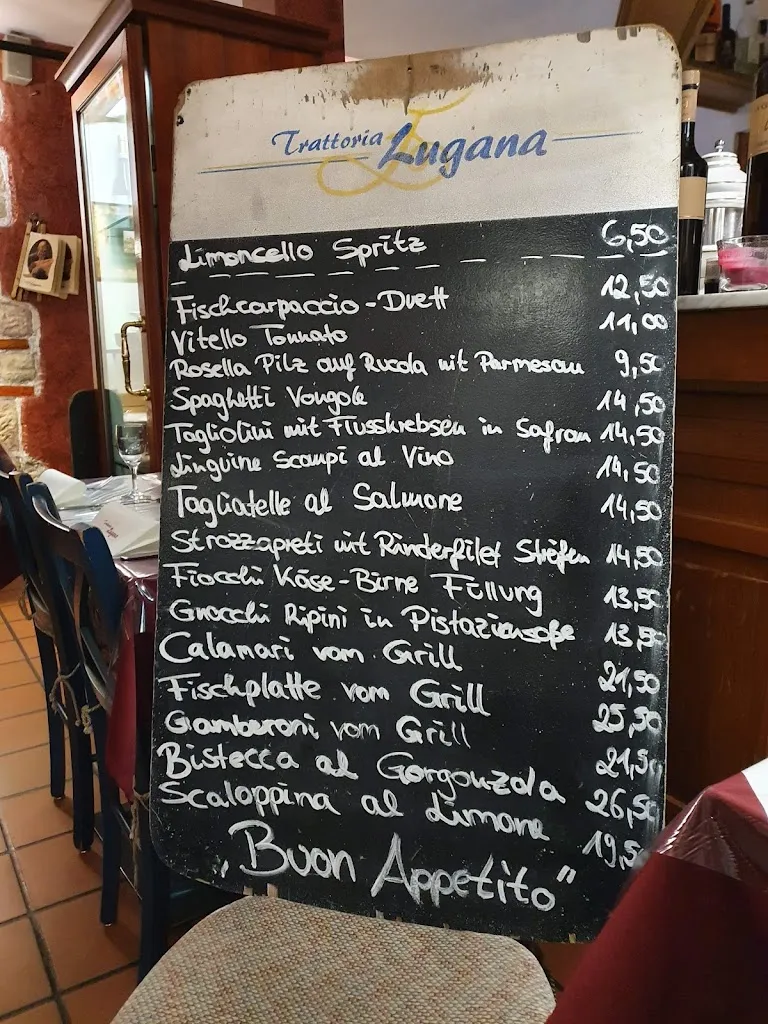 Trattoria Lugana
Limoncello Spritz 6,50
Fischcarpaccio-Duett 12,50
Vitello Tonnato 11,00
Rosella Pilz auf Rucola mit Parmesan 9,50
Spaghetti Vongole 14,50
Tagliolini mit Flusskrebsen in Safran 14,50
Linguine Scampi al Vino 14,50
Tagliatelle al Salmone 14,50
Strozzapreti mit Rinderfilet Streifen 14,50
Fiocchi Käse-Birne Füllung 13,50
Gnocchi Ripini in Pistaziensoße 13,50
Calamari vom Grill 21,50
Fischplatte vom Grill 25,50
Gamberoni vom Grill 21,50
Bistecca al Gorgonzola 26,50
Scaloppina al Limone 19,50
„Buon Appetito"